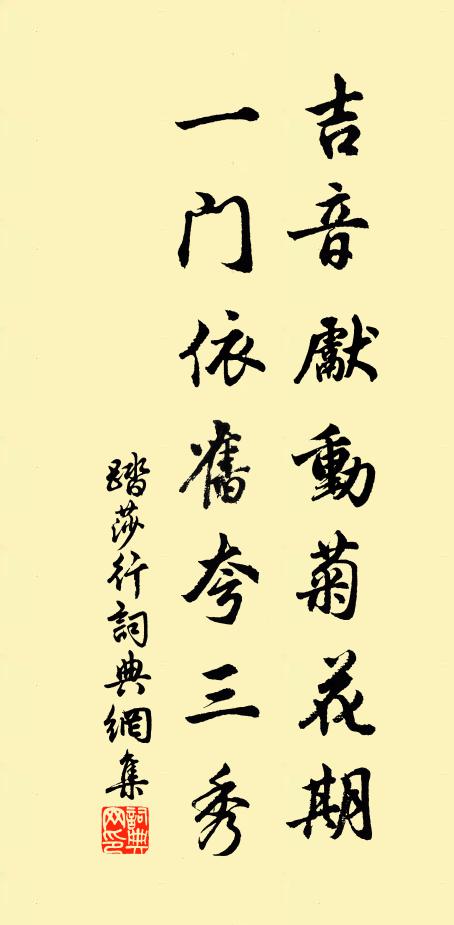 吉音獻動菊花期
一门依舊夸三秀
踏莎行詞典網集
詞典网印